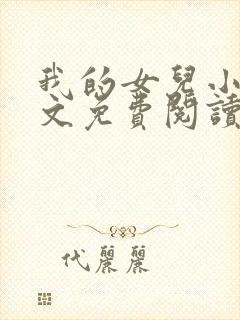 我的女兒小
文免費閱讀
代麗麗